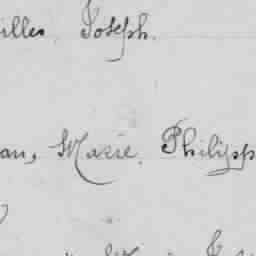 illes Joseph.
an, Marie, Philipp